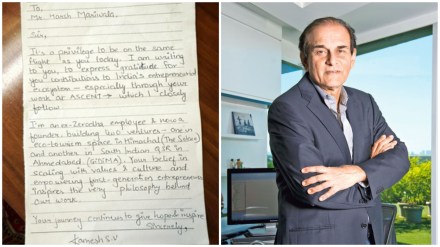 To,
Mr. Harsh Mariwala,
Sir,
It's a privilege to be on the same
flight as you today. I am writing
to you, to express gratitude for
your contributions to India's entrepreneurial
ecosystem – especially through your
work at ASCENT → which I closely
follow.
I'm an ex-Zerodha employee & now a
founder, building two ventures – one in
eco-tourism space in Himachal
and another in South Indian QSR in
Ahmedabad. Your belief in
scaling with values & culture and
empowering first-generation entrepreneurs
inspires the very philosophy behind
our work.
Your journey continues to give hope & inspire
Sincerely,
Kamesh S.V